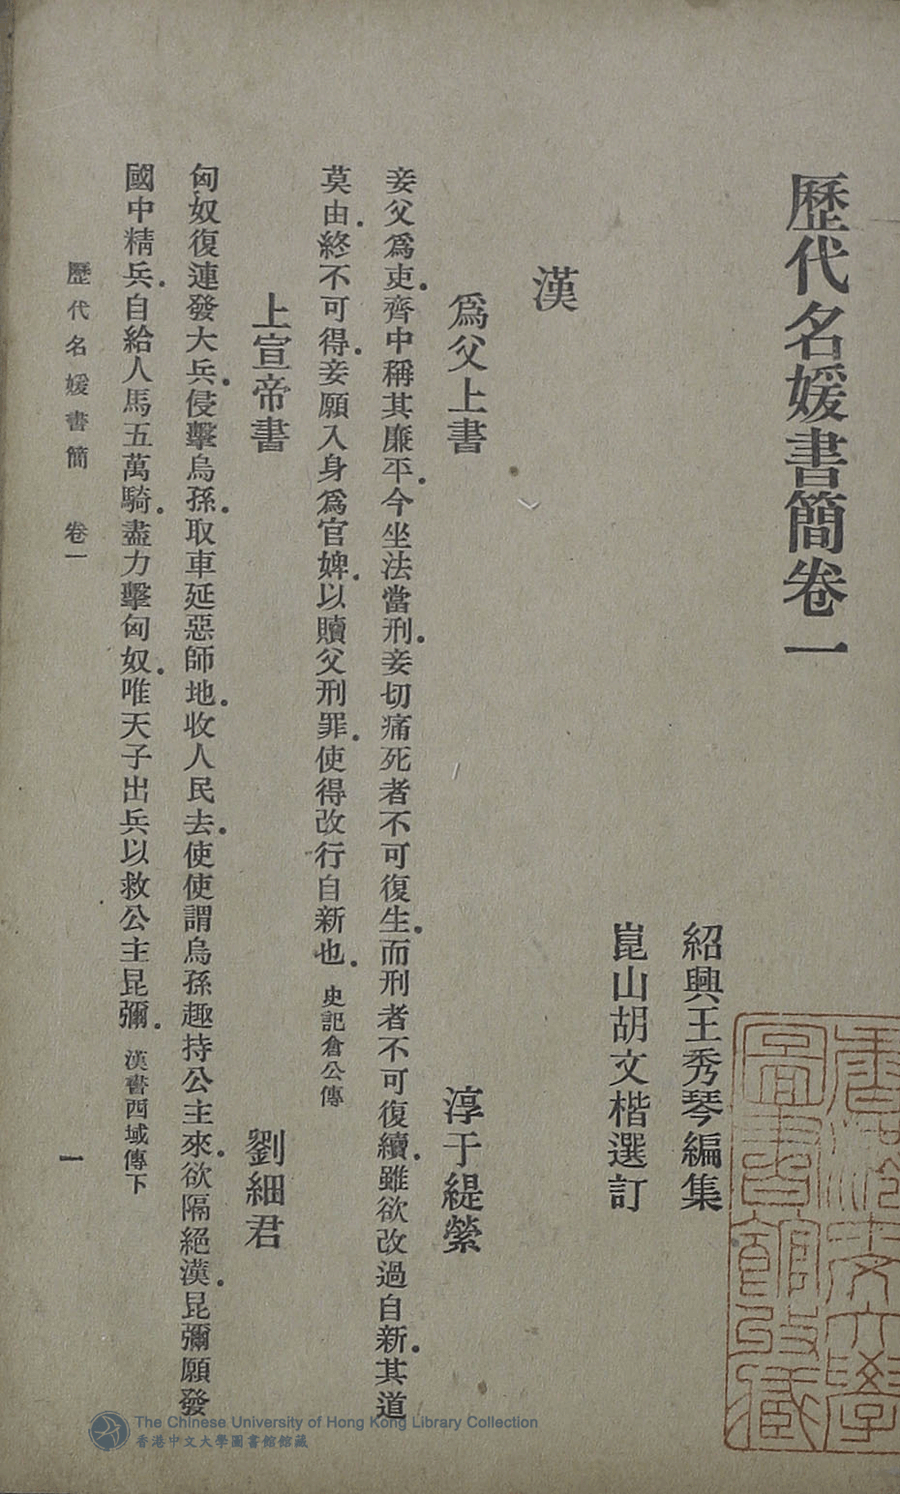 歷代名媛書簡卷一
紹興王秀琴編集
崑山胡文楷選訂
漢
爲父上書 淳于緹縈
妾父爲吏．齊中稱其廉平．今坐法當刑．妾切痛死者不可復生．而刑者不可復續．雖欲改過自新．其道
莫由．終不可得．妾願入身爲官婢．以贖父刑罪．使得改行自新也．史記倉公傳
上宣帝書 劉細君
匈奴復連發大兵．侵擊烏孫．取車延惡師地．收人民去．使使謂烏孫趣持公主來．欲隔絕漢．昆彌願發
國中精兵．自給人馬五萬騎．盡力擊匈奴．唯天子出兵以救公主昆彌．漢書西域傳下
歷代名媛書簡 卷一 一
圖書館收藏
The Chinese University of Hong Kong Library Collection
香港中文大學圖書館館藏